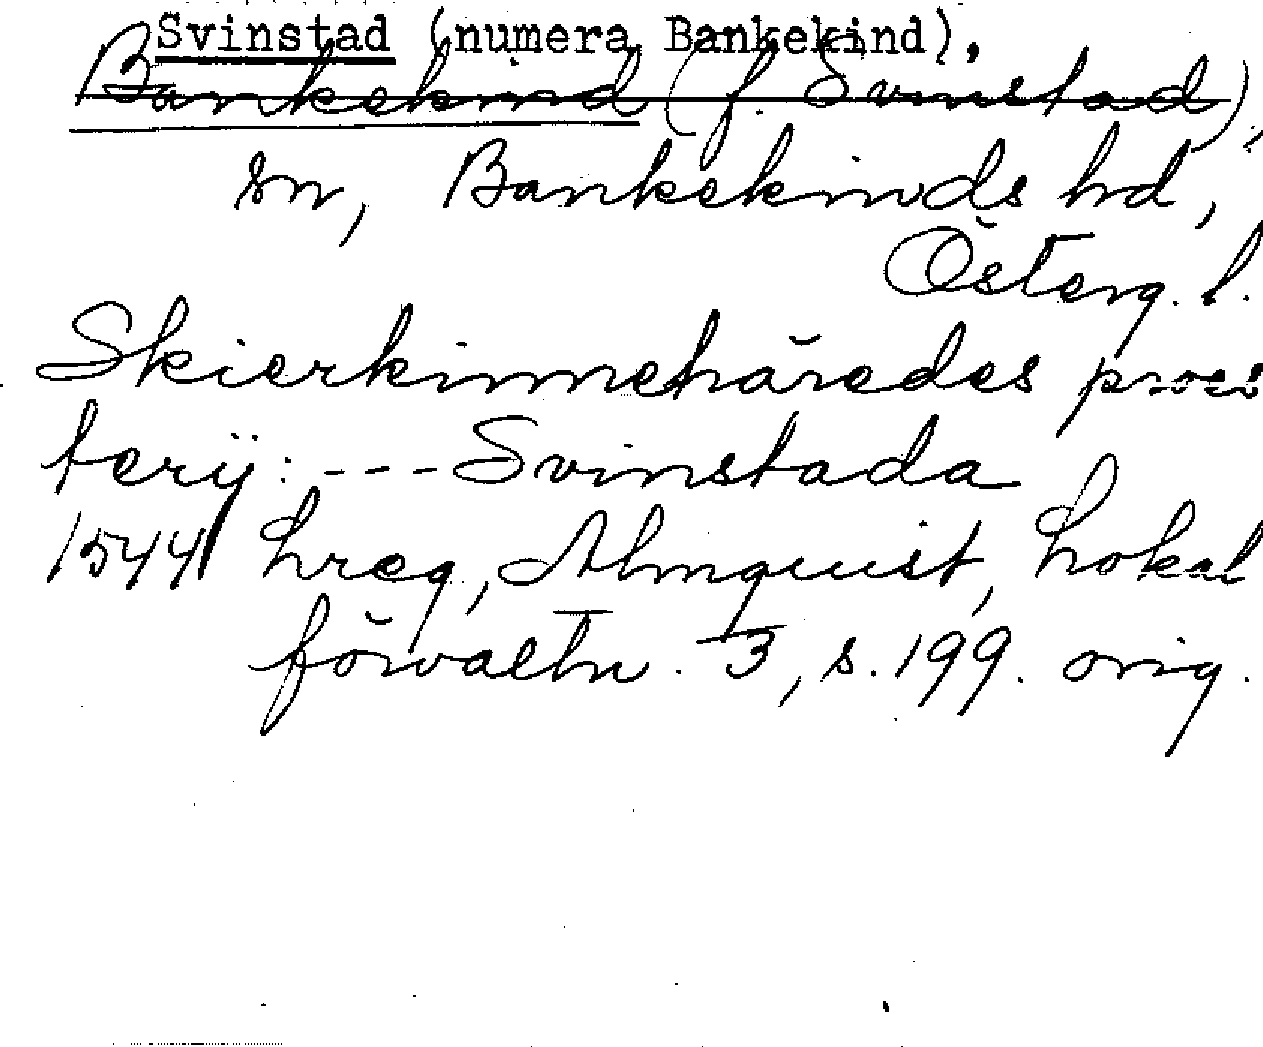 Svinstad (numera Bankekind),
Bankekind (f. Svinstad),
sn, Bankekinds hd,
Österg. l.
Skierkinnehäredes proes
terij: --- Svinstada
1544 hreg, Almquist, Lokal
förvaltn. 3, s. 199. orig.